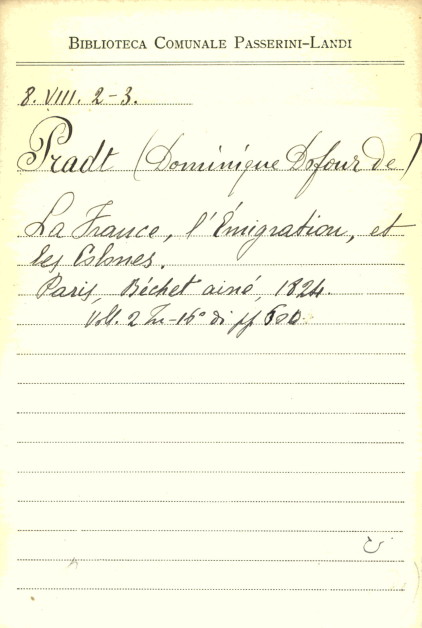 BIBLIOTECA COMUNALE PASSERINI-LANDI
8. VIII. 2-3.
Pradt (Dominique Dofour de)
La France, l'Émigration, et
les Colones.
Paris, Béchet ainé, 1824.
Voll. 2 In-16° di pp